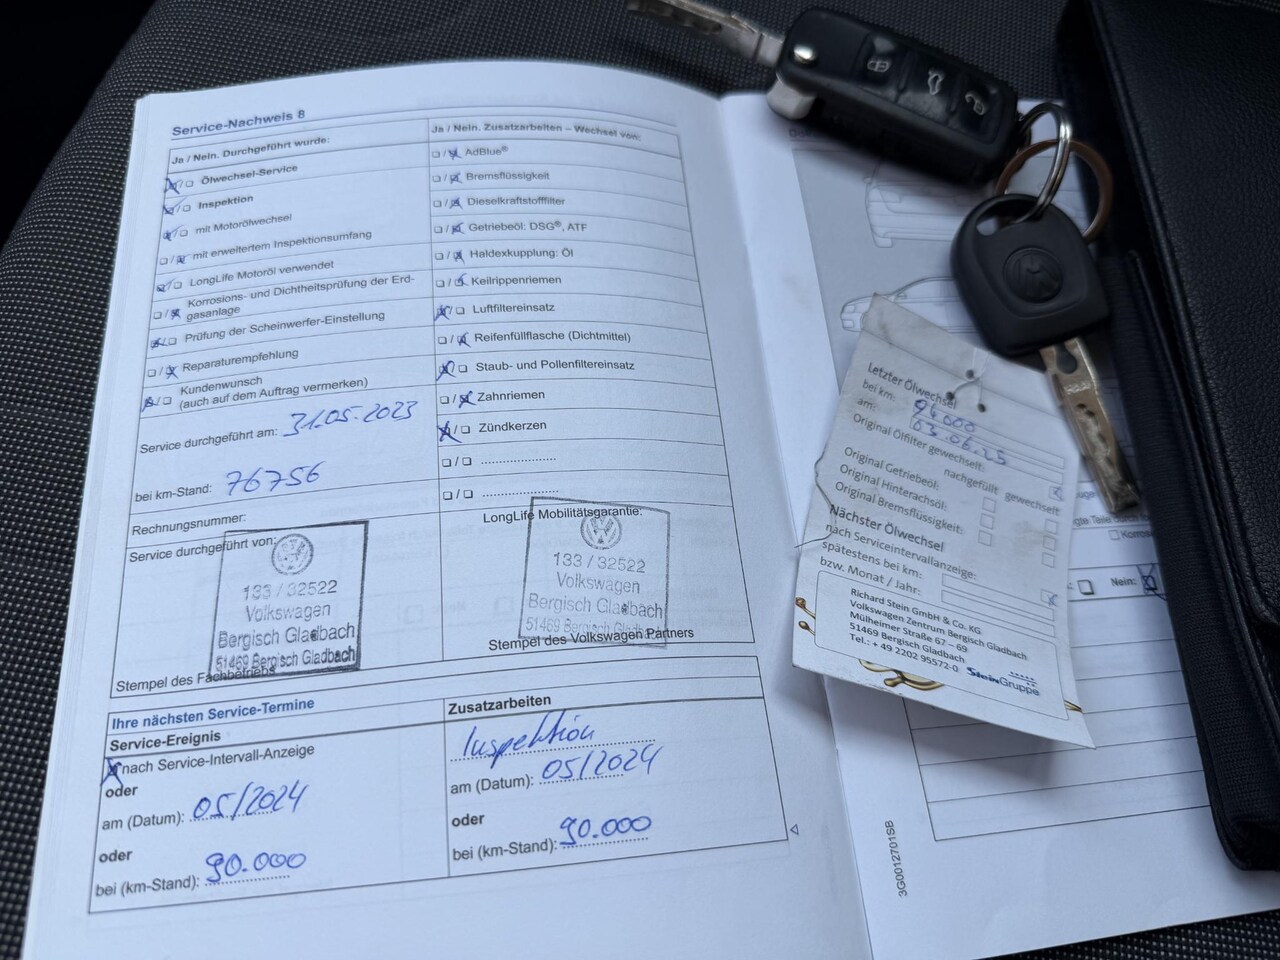 Service-Nachweis 8
Ja / Nein. Durchgeführt wurde:
Ölwechsel-Service
Inspektion
mit Motorölwechsel
mit erweitertem Inspektionsumfang
LongLife Motoröl verwendet
Korrosions- und Dichtheitsprüfung der Erd-
gasanlage
Prüfung der Scheinwerfer-Einstellung
Reparaturempfehlung
Kundenwunsch
(auch auf dem Auftrag vermerken)
Service durchgeführt am: 31.05.2023
bei km-Stand: 76756
Rechnungsnummer:
Service durchgeführt von:
133 / 32522
Volkswagen
Bergisch Gladbach
51469 Bergisch Gladbach
Stempel des Fachbetriebs
Ja / Nein. Zusatzarbeiten – Wechsel von:
AdBlue®
Bremsflüssigkeit
Dieselkraftstofffilter
Getriebeöl: DSG®, ATF
Haldexkupplung: Öl
Keilrippenriemen
Luftfiltereinsatz
Reifenfüllflasche (Dichtmittel)
Staub- und Pollenfiltereinsatz
Zahnriemen
Zündkerzen
LongLife Mobilitätsgarantie:
133 / 32522
Volkswagen
Bergisch Gladbach
51469 Bergisch Gladbach
Stempel des Volkswagen Partners
Ihre nächsten Service-Termine
Service-Ereignis
nach Service-Intervall-Anzeige
oder
am (Datum): 05/2024
oder
bei (km-Stand): 90.000
Zusatzarbeiten
Inspektion
am (Datum): 05/2024
oder
bei (km-Stand): 90.000
Letzter Ölwechsel
bei km: 94000
am: 03.06.25
Original Ölfilter gewechselt:
nachgefüllt gewechselt
Original Getriebeöl:
Original Hinterachsöl:
Original Bremsflüssigkeit:
Nächster Ölwechsel
nach Serviceintervallanzeige:
spätestens bei km:
bzw. Monat / Jahr:
Richard Stein GmbH & Co. KG
Volkswagen Zentrum Bergisch Gladbach
Mülheimer Straße 67 – 69
51469 Bergisch Gladbach
Tel.: + 49 2202 95572-0
SteinGruppe
Nein:
3G0012701SB